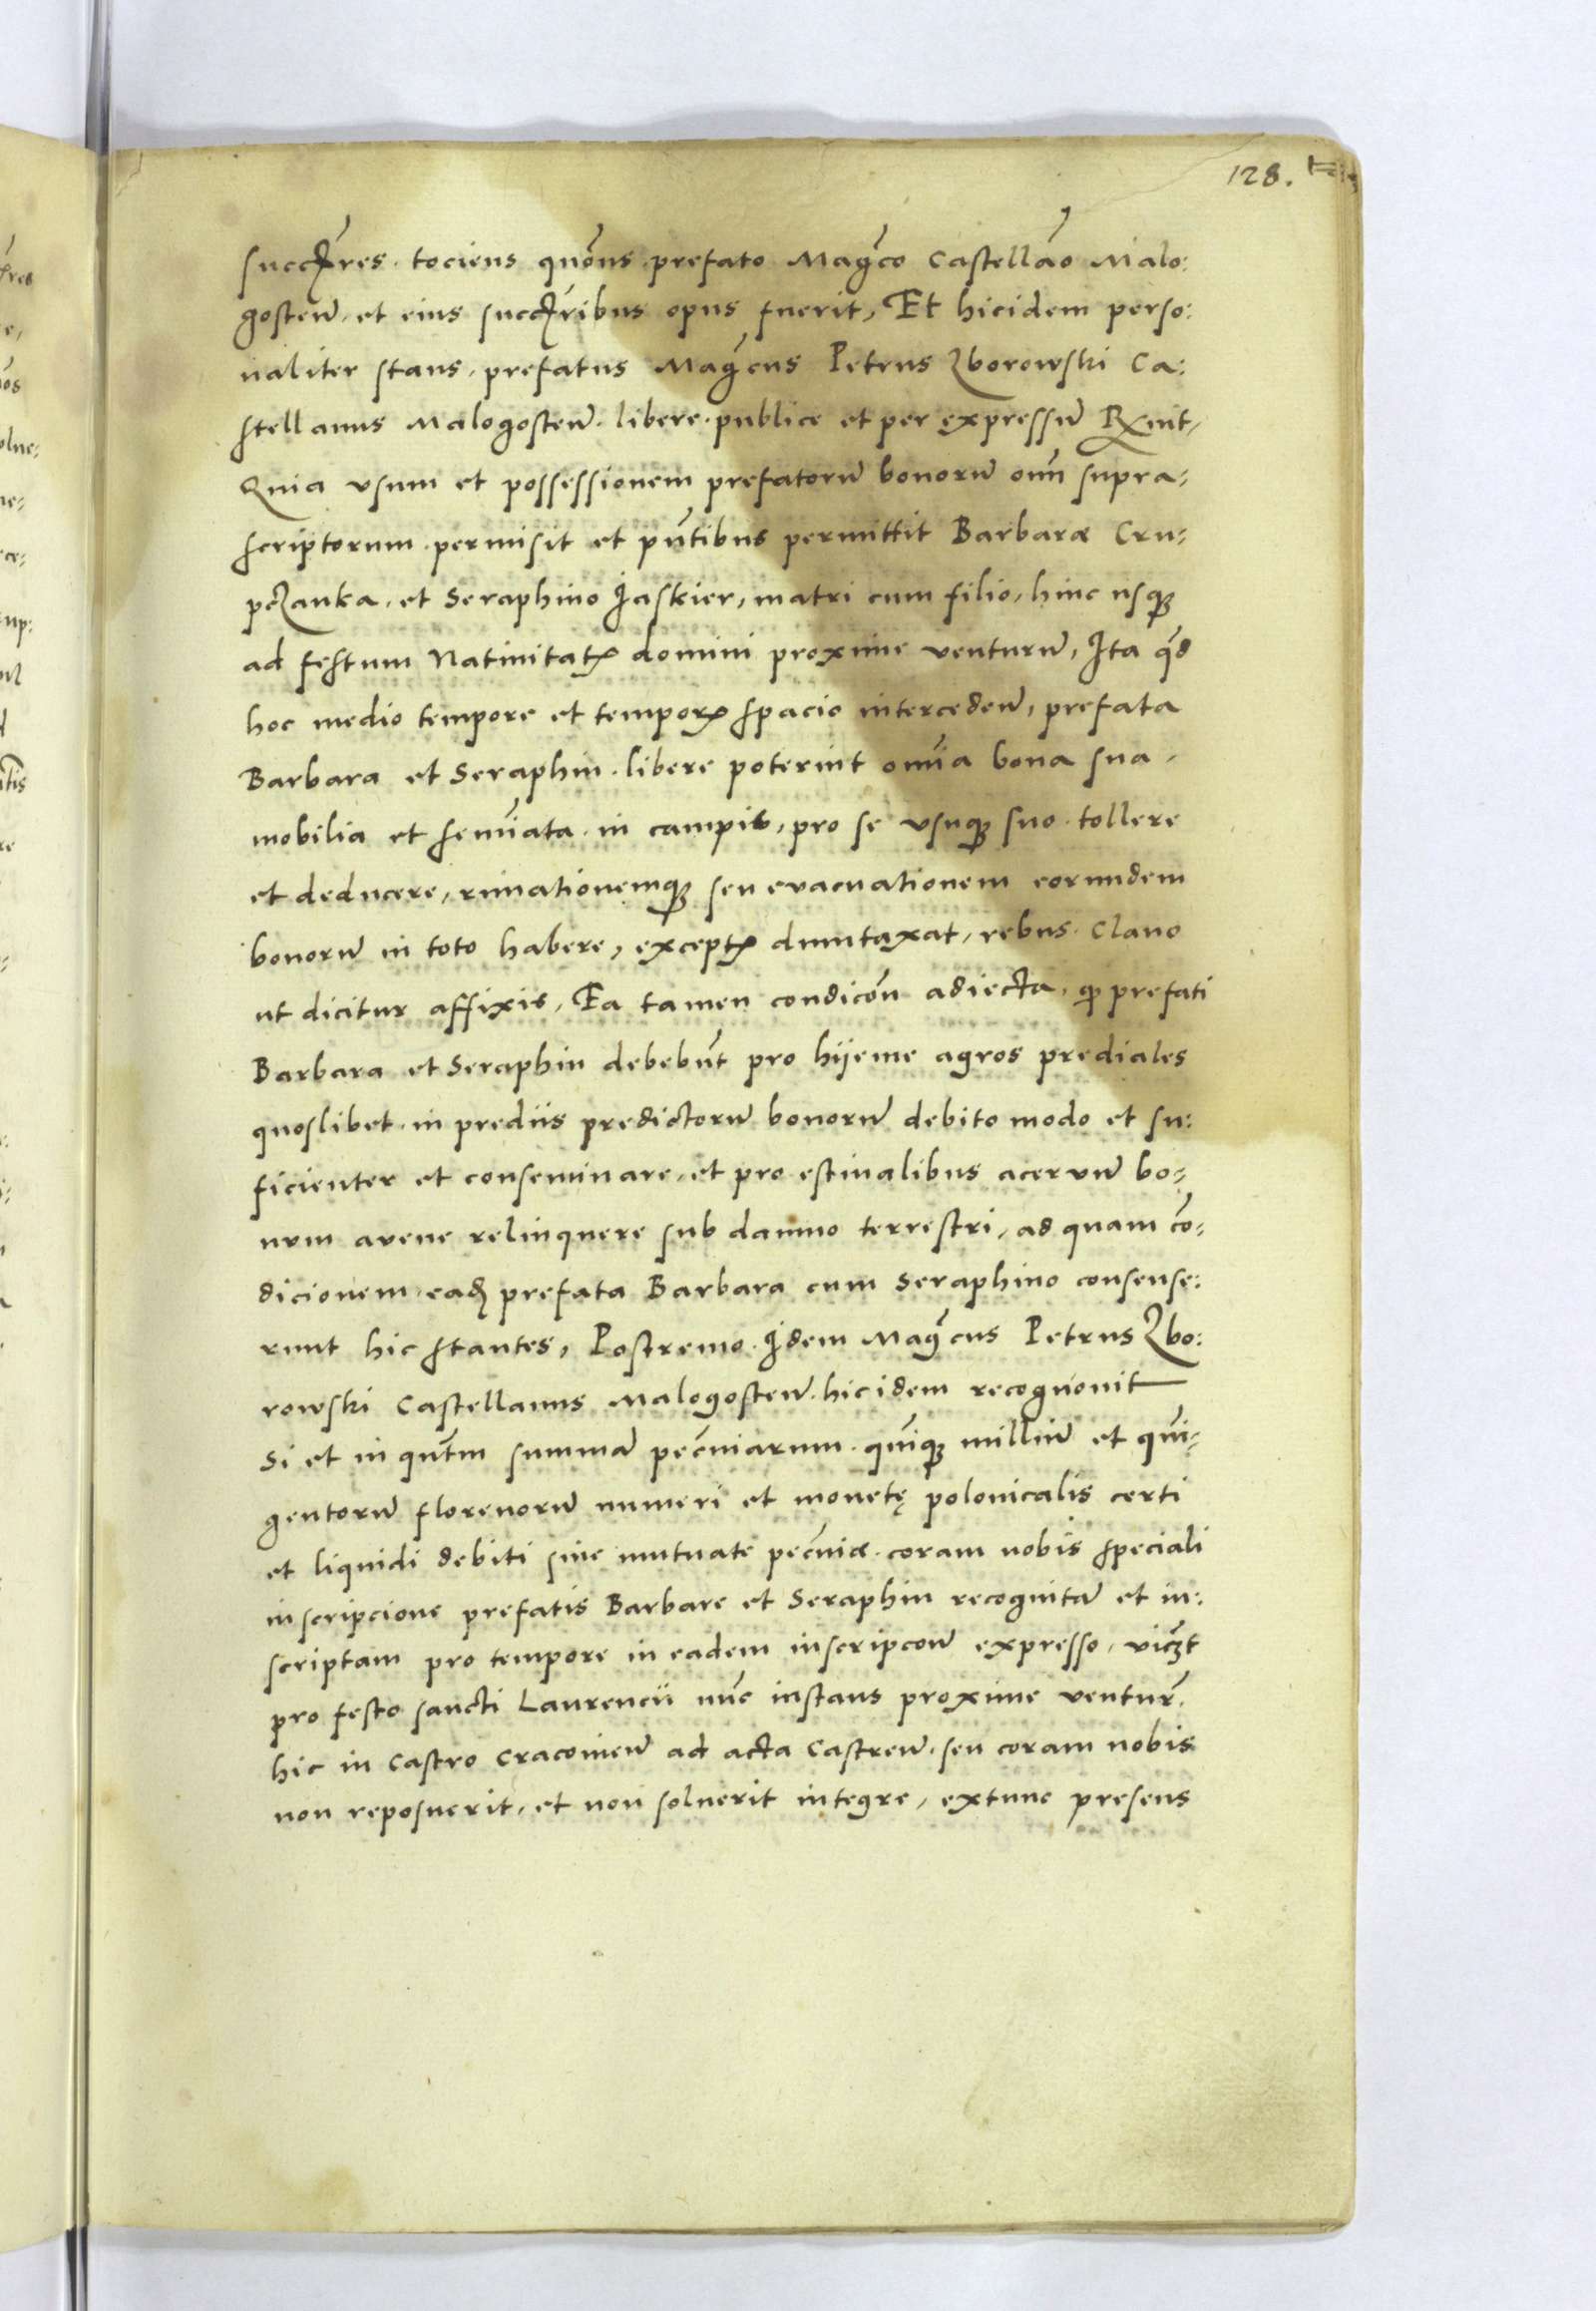 128.
succ̃res. tociens quõns prefato Mag̃co Castellão Malo:
gosteñ. et eius succ̃ribus opus fuerit, Et hicidem perso:
naliter stans, prefatus Mag̃cus Petrus Zborowski Ca:
stellanus Malogosteñ. libere. publice et per expressũ Rx̃nit,
Quia vsum et possessionem prefatorũ bonorũ om̃ supra,
scriptorum. permisit et pñtibus permittit Barbaræ Cru,
pczanka, et Seraphino Jaskier, matri cum filio, hinc usqȝ
ad festum Natiuitatꝭ domini proxime venturũ, Ita q̃d
hoc medio tempore et temporꝭ spacio intercedeñ, prefata
Barbara et Seraphin. libere poterint omĩa bona sua,
mobilia et semĩata in campis, pro se vsuqȝ suo tollere
et deducere, ruinationemqȝ seu evacuationem eorundem
bonorũ in toto habere, exceptꝭ duntaxat, rebus Clauo
ut dicitur affixis, Ea tamen condicõn adiecta, qȝ prefati
Barbara et Seraphin debebũt pro hijeme agros prediales
quoslibet. in prediis predictorũ bonorũ debito modo et su:
ficienter et conseminare, et pro estiualibus acervũ bo,
num avene relinquere sub damno terrestri, ad quam cõ,
dicionem, eadꝫ prefata Barbara cum Seraphino consense:
runt hic stantes, Postremo. Idem Mag̃cus Petrus Zbo:
rowski Castellanus Malogosteñ. hicidem recognouit
Si et in qũtm summã pecũiarum. quĩqȝ milliũ et quĩ,
gentorũ florenorũ numeri et monetę polonicalis certi
et liquidi debiti siue mutuate pecũiæ. coram nobis speciali
inscripcione prefatis Barbare et Seraphin recognitã et in:
scriptam pro tempore in eadem inscripcoñ expresso, vicꝫt
pro festo sancti Laurencii nũc instans proxime ventur̃.
hic in Castro Cracouieñ ad acta Castreñ. seu coram nobis
non reposuerit, et non soluerit integre, extunc presens